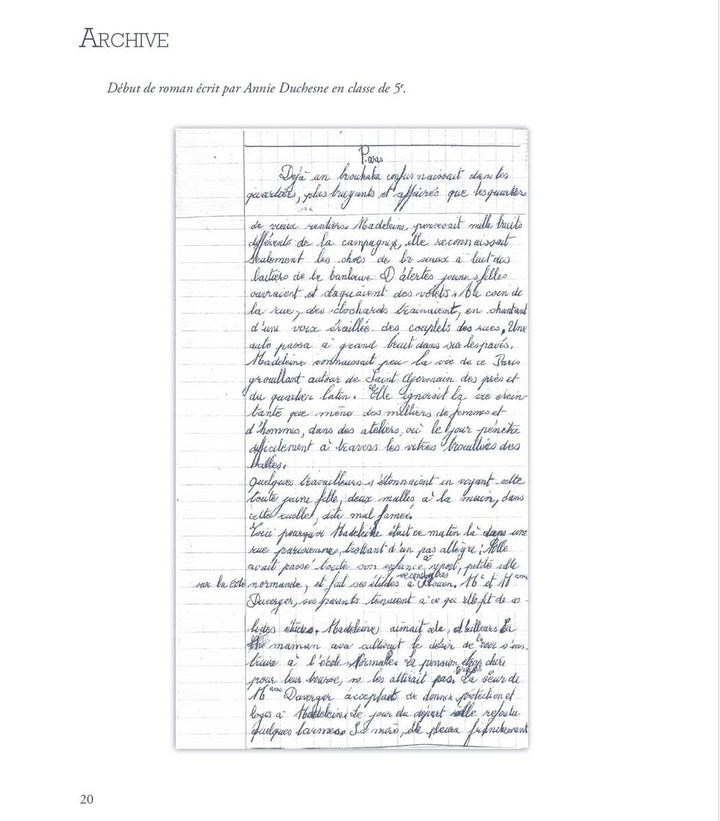 ARCHIVE
Début de roman écrit par Annie Duchesne en classe de 5e.
Paris
Dejà un brouhaha confus naissait dans les
quartiers, plus bruyants et affairés que les quartiers
de vieux rentiers. Madeleine, percevait mille bruits
différents de la campagne, elle reconnaissait
seulement les chocs de
laitiers de la banlieue. D'alertes jeunes filles
ouvraient et claquaient des volets. Au coin de
la rue, des clochards trainaient, en chantant
d'une voix éraillée des couplets des rues. Une
auto passa à grand bruit dans sur les pavés.
Madeleine connaissait peu la vie de ce Paris
grouillant autour de Saint Germain des près et
du quartier latin. Elle ignorait la vie érein-
tante que mène des milliers de femmes et
d'hommes, dans des ateliers, où le jour pénètre
difficilement à travers les vitres brouillées des
salles.
Quelques travailleurs s'étonnaient en voyant cette
toute jeune fille, deux malles à la main, dans
cette ruelle, dite mal famée.
Voici pourquoi Madeleine était ce matin là dans une
rue parisienne, trottant d'un pas allègre : Elle
avait passé toute son enfance, petite ville
sur la Côte normande, et fait ses études secondaires à Rouen. Mr et Mme
Duverger, ses parents tenaient à ce qu'elle fit de so-
lides études. Madeleine, aimait cela, d'ailleurs Sa
maman avait cultivait le désir de s'ins-
truire à l'école Normale. La pension, trop chère
pour leur bourse, ne les attirait pas. La sœur de
Mme Duverger acceptait de donner protection et
logis à Madeleine. Le jour du départ elle refoula
quelques larmes. Sa mère, elle pleura franchement
20